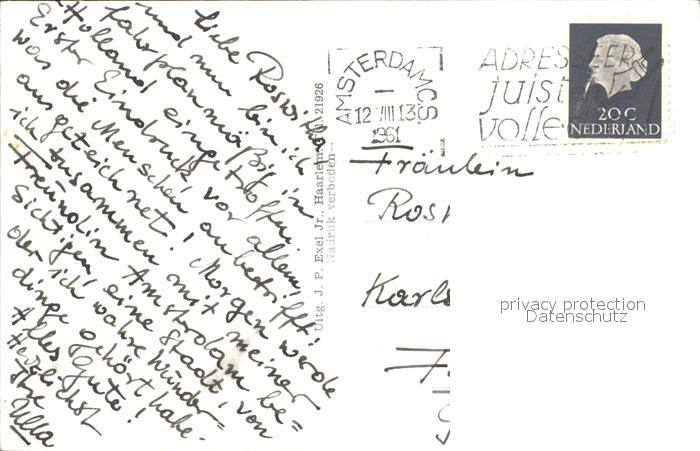 Liebe Roswitha,
und nun bin ich
fahrplanmäßig in
Holland eingetroffen.
Erster Eindruck vor allem,
was die Menschen anbetrifft:
ausgezeichnet! Morgen werde
ich zusammen mit meiner
Freundin Amsterdam be=
sichtigen, eine Stadt, von
der ich wahre Wunder=
dinge gehört habe.
Alles Gute!
Herzlichst
Ihre
Ulla
Uitg. J. P. Exel Jr., Haarlem. Tel. 21926
—Nadruk verboden—
AMSTERDAM CS
12 VIII 13
1961
ADRESSEER
juist
volle
20 C
NEDERLAND
Fräulein
Ros
Karls
privacy protection
Datenschutz